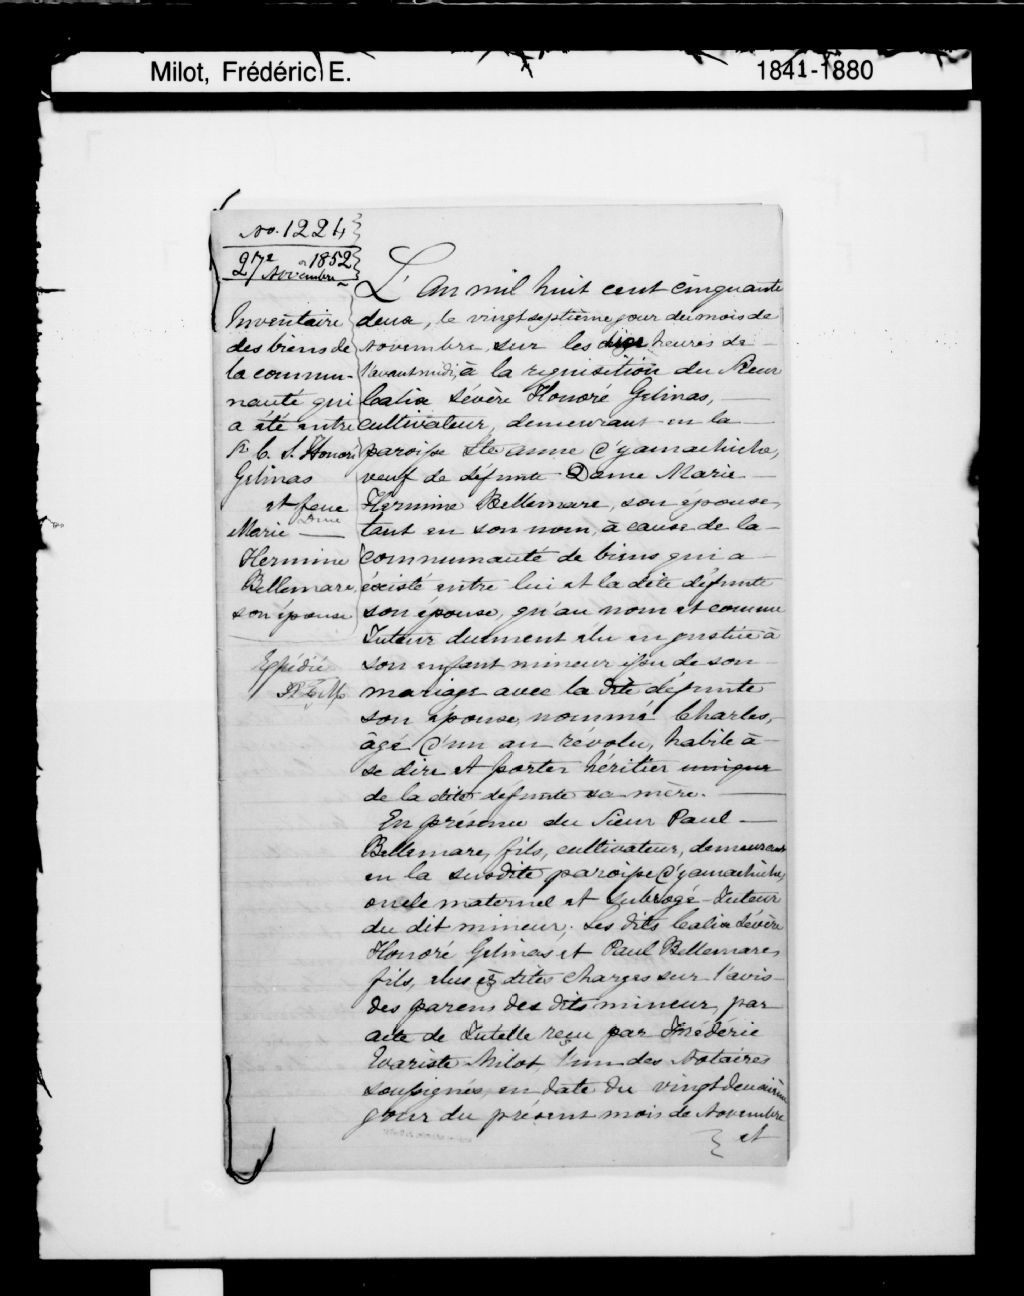 Milot, Frédéric E.
1841-1880
No. 1224
27e Novembre 1852
Inventaire
des biens de
la commu-
nauté qui
a été entre
Sr C. S. Honoré
Gelinas
et feue
Dme
Marie
Hermine
Bellemare,
son épouse
Expédié
L'An mil huit cent cinquante
deux, le vingt septième jour du mois de
Novembre, sur les dix heures de
l'avant midi, à la requisition du Sieur
Calixe Sévère Honoré Gelinas,
cultivateur, demeurant en la
paroisse Ste Anne d'yamachiche,
veuf de défunte Dame Marie
Hermine Bellemare, son épouse,
tant en son nom, à cause de la
communauté de biens qui a
éxisté entre lui et la dite défunte
son épouse, qu'au nom et comme
Tuteur duement élu en justice à
son enfant mineur issu de son
mariage avec la dite défunte
son épouse, nommé Charles,
âgé d'un an révolu, habile à
se dire et porter héritier unique
de la dite défunte sa mère.
En présence du Sieur Paul
Bellemare, fils, cultivateur, demeurant
en la susdite paroisse d'yamachiche,
oncle maternel et subrogé-Tuteur
du dit mineur; Les dits Calixe Sévère
Honoré Gelinas et Paul Bellemare,
fils, élus ès dites charges sur l'avis
des parens des dits mineur, par
acte de Tutelle reçu par Frédéric
Evariste Milot, l'un des Notaires
soussignés, en date du vingt deuxième
jour du présent mois de Novembre
et